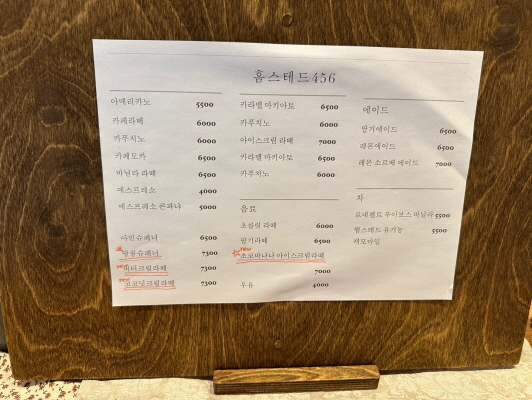 홈스테드456
아메리카노 5500
카페라떼 6000
카푸치노 6000
카페모카 6500
바닐라 라떼 6500
에스프레소 4000
에스프레소 콘파냐 5000
아인슈페너 6500
땅콩슈페너 7300
버터크림라떼 7300
코코넛크림라떼 7300
카라멜 마키아토 6500
카푸치노 6000
아이스크림 라떼 7000
카라멜 마키아토 6500
카푸치노 6000
음료
초콜릿 라떼 6000
딸기라떼 6500
new
초코바나나 아이스크림라떼
7000
우유 4000
에이드
딸기에이드 6500
레몬에이드 6500
레몬 소르베 에이드 7000
차
로네펠트 루이보스 바닐라 5500
힐스테드 유기농 5500
캐모마일